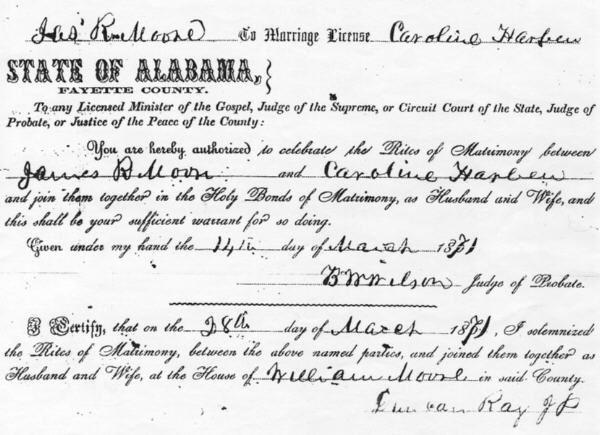 Jas' R Moore To Marriage License Caroline Harben
STATE OF ALABAMA,
FAYETTE COUNTY.
To any Licensed Minister of the Gospel, Judge of the Supreme, or Circuit Court of the State, Judge of
Probate, or Justice of the Peace of the County:
You are hereby authorized to celebrate the Rites of Matrimony between
James R Moore and Caroline Harben
and join them together in the Holy Bonds of Matrimony, as Husband and Wife, and
this shall be your sufficient warrant for so doing.
Given under my hand the 14th day of March 1871
B W Wilson Judge of Probate.
I Certify, that on the 28th day of March 1871, I solemnized
the Rites of Matrimony, between the above named parties, and joined them together as
Husband and Wife, at the House of William Moore in said County.
Duncan Ray J P